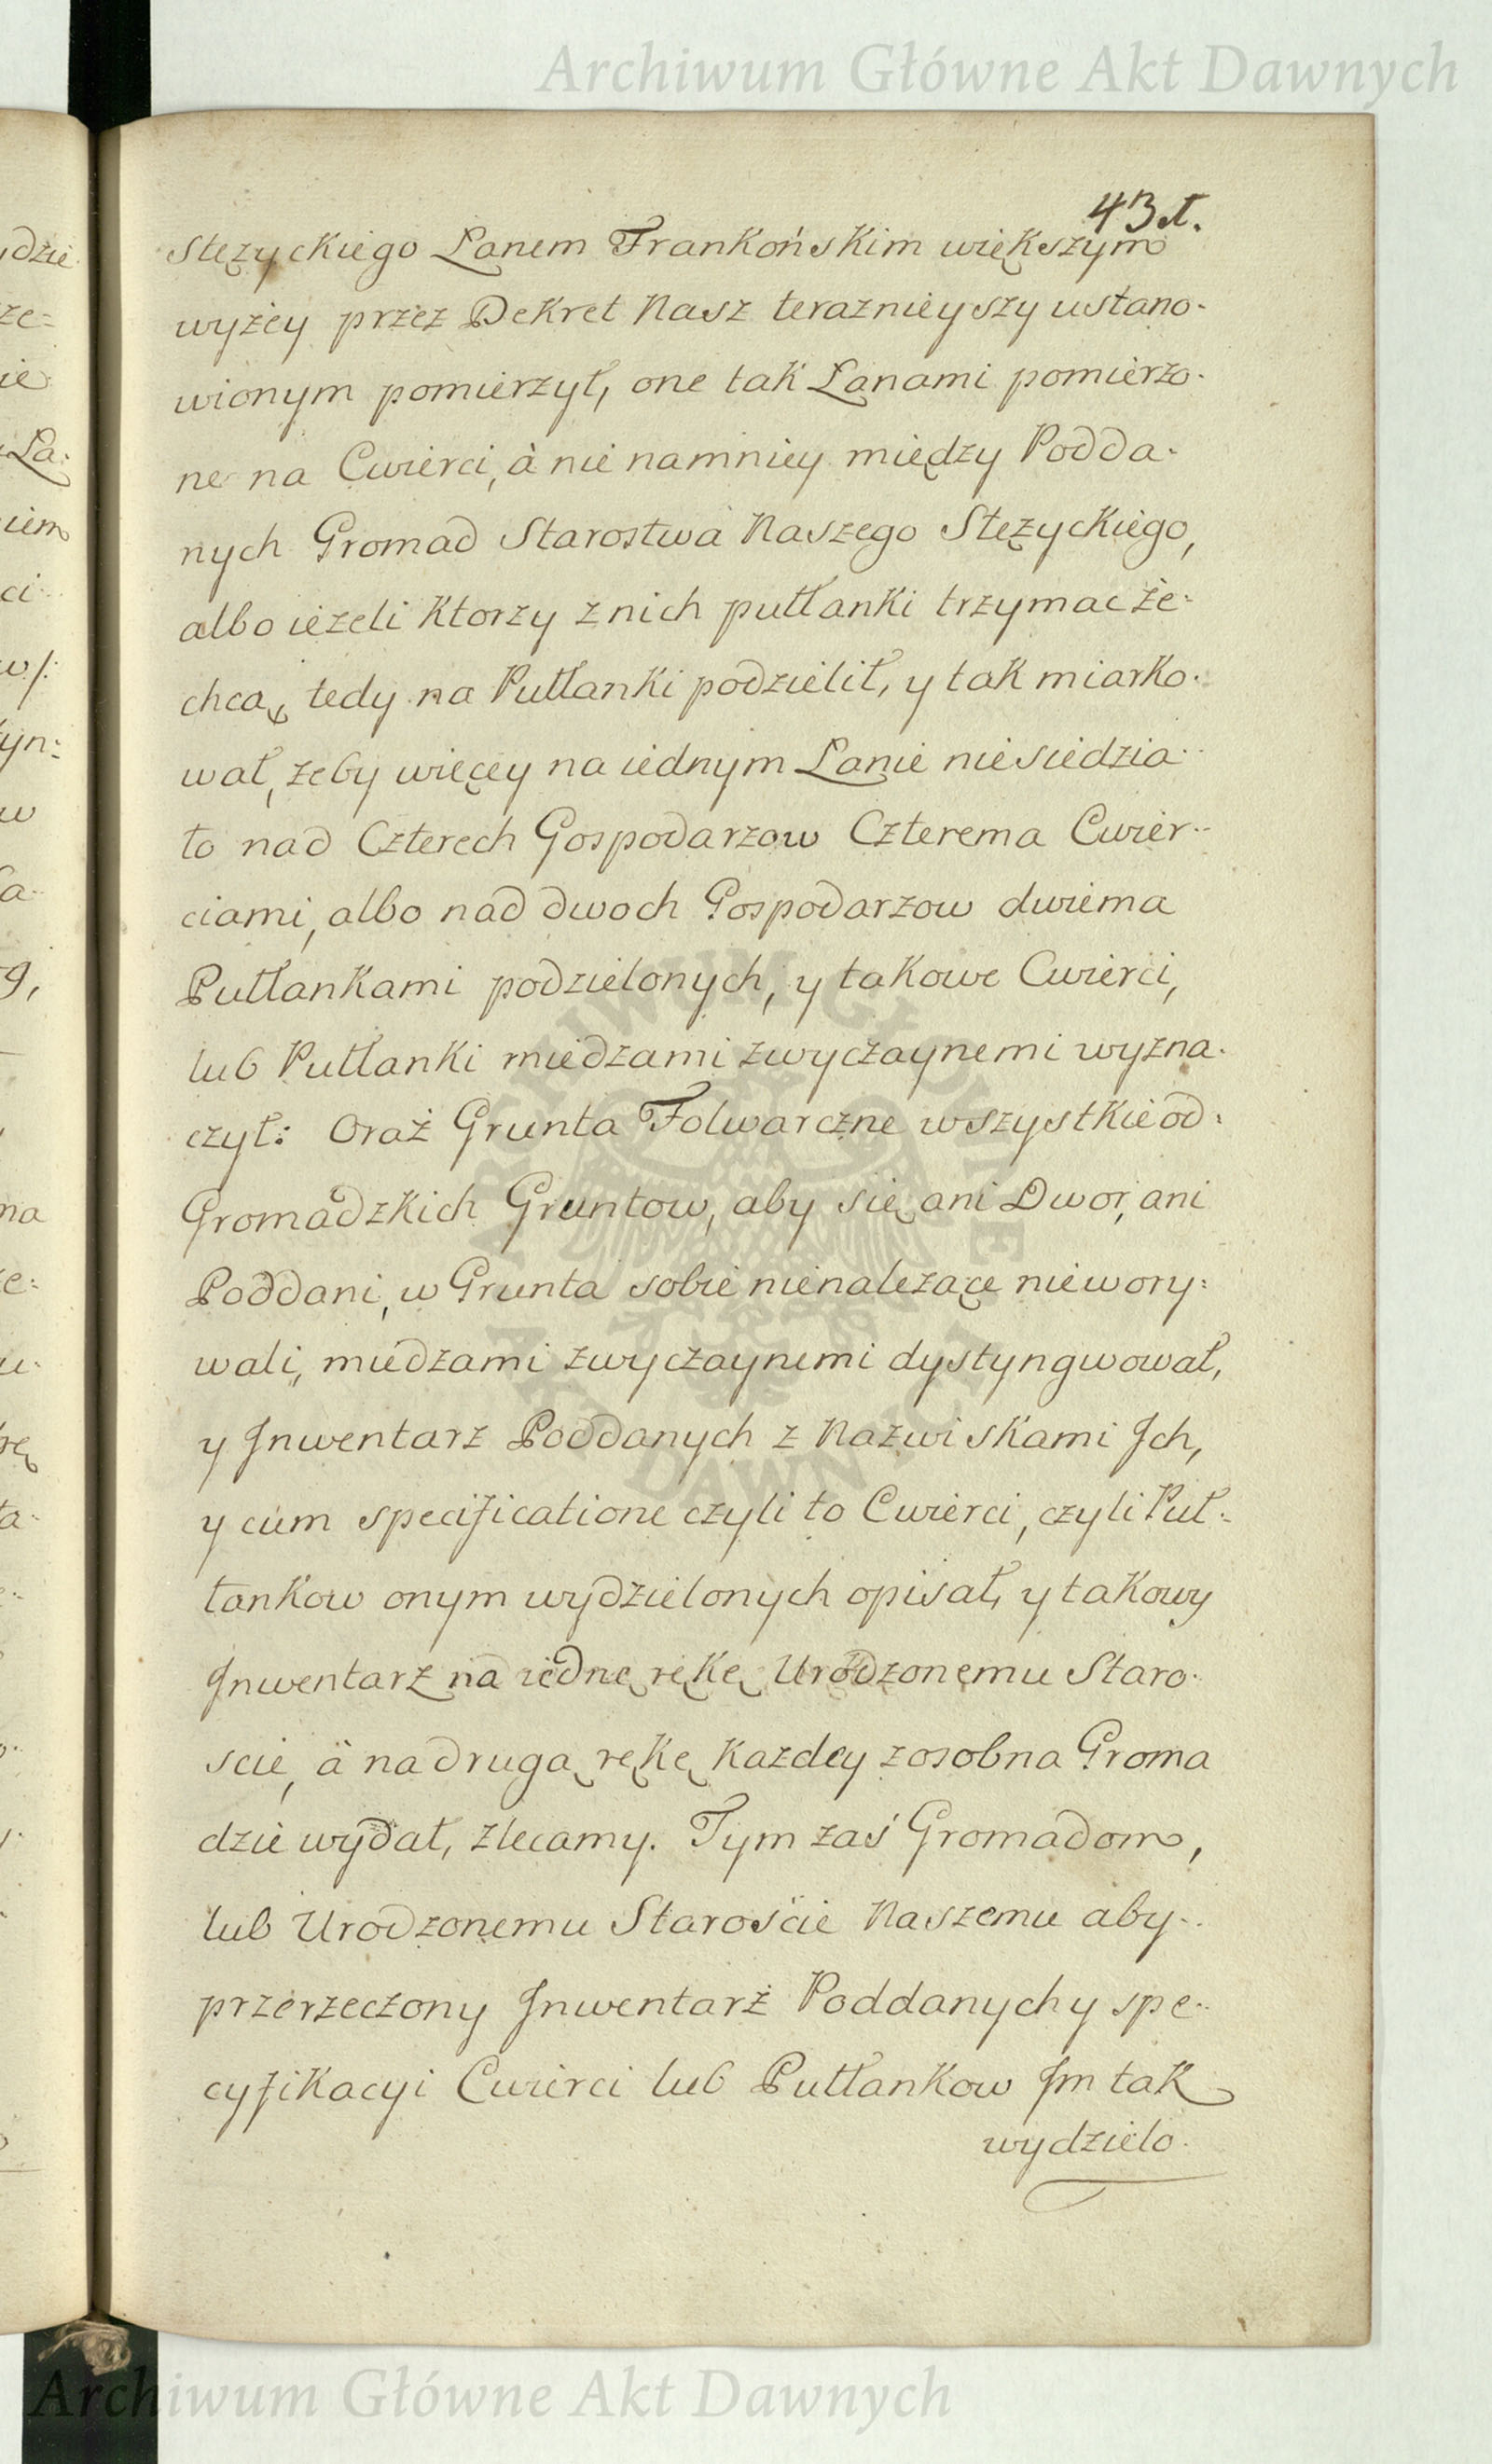 Archiwum Główne Akt Dawnych
Stęzyckiego Łanem Frankońskim większym
wyżey przez Dekret Nasz teraznieyszy ustano-
wionym pomierzył, one tak Łanami pomierzo-
ne na Cwierci, à nie namniey między Podda-
nych Gromad Starostwa Naszego Stęzyckiego,
albo ieżeli Ktorzy z nich pułłanki trzymac ze-
chcą, tedy na Pułłanki podzielił, y tak miarko-
wał, żeby więcey na iednym Łanie nie siedzia-
ło nad Czterech Gospodarzow Czterema Cwier-
ciami, albo nad dwoch Gospodarzow dwiema
Pułłankami podzielonych, y takowe Cwierci,
lub Pułłanki miedzami zwyczaynemi wyzna-
czył: Oraż Grunta Folwarczne wszystkie od-
Gromadzkich Gruntow, aby się ani Dwor, ani
Poddani, w Grunta sobie nienalezące niewory-
wali, miedzami zwyczaynemi dystyngwował,
y Jnwentarz Poddanych z Nazwiskami Jch,
y cum specificatione czyli to Cwierci, czyli Puł-
łankow onym wydzielonych opisał, y takowy
Jnwentarz na iednę rękę Urodzonemu Staro-
scie, à na drugą rękę Kazdey zosobna Groma
dzie wydał, zlecamy. Tym zaś Gromadom,
lub Urodzonemu Staroście Naszemu aby-
przerzeczony Jnwentarż Poddanych y spe-
cyfikacyi Cwierci lub Pułłankow Jm tak
wydzielo-
Archiwum Główne Akt Dawnych